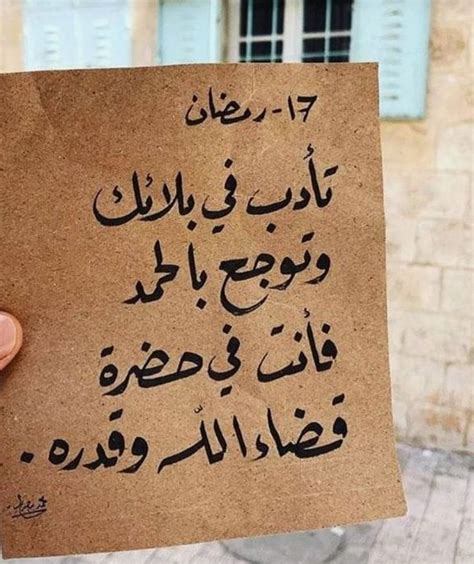 ١٧- رمضان
تأدب في بلائك
وتوجع بالحمد
فأنت في حضرة
قضاء الله وقدره .